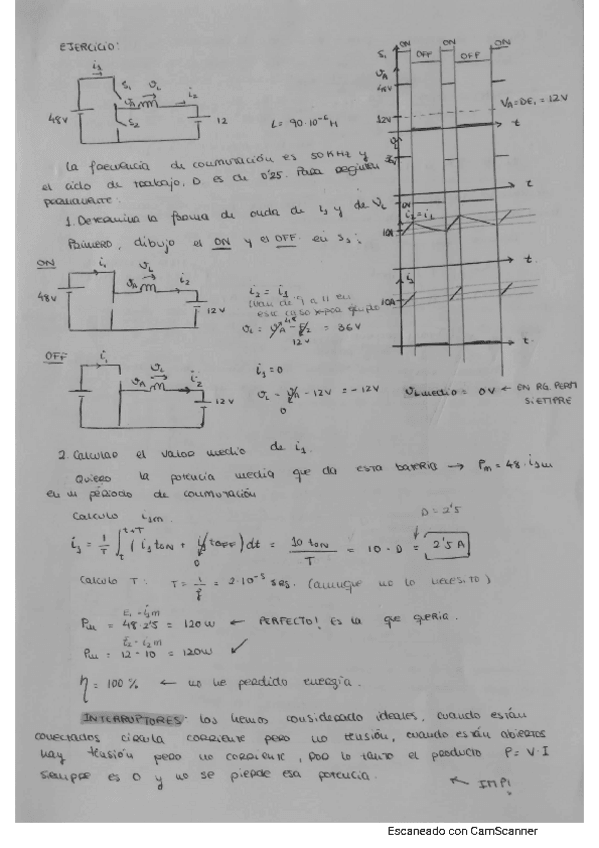 EJERCICIO:
i₁
S₁
V_L
V_A
i₂
S₂
48V
12
L = 90·10⁻⁶ H
La frecuencia de conmutación es 50 KHz y
el ciclo de trabajo, D es de 0'25. Para régimen
permanente:
1. Determina la forma de onda de i₁ y de V_L
Primero, dibujo el ON y el OFF en S₁:
ON
i₁
V_L
V_A
i₂
48V
12V
i₂ = i₁
(van de 9 a 11 en
este caso
V_L = V_A - E₂ = 36V
48
12V
OFF
i₁
V_L
V_A
i₂
12V
i₁ = 0
V_L = V_A - 12V = -12V
0
V_L medio = 0V ← EN RG. PERM
SIEMPRE
S₁
ON
OFF
ON
OFF
ON
V_A
48V
12V
V_A = DE₁ = 12V
t
t
ON
i₂ = i_L
10A
t
10A
t
2. Calcular el valor medio de i₁.
Quiero la potencia media que da esta batería → Pm = 48 · i₁m
en un período de conmutación
Calculo i₁m.
D = 2'5
i₁ = 1/T ∫ₜᵗ⁺ᵀ (i₁ tON + i₁ tOFF) dt = 10 tON / T = 10 · D = 2'5 A
0
Calculo T: T = 1/f = 2·10⁻⁵ SRS. (aunque no lo necesito)
E₁ · i₁m
Pm = 48 · 2'5 = 120 W ← PERFECTO! Es la que quería.
E₂ · i₂m
Pm = 12 · 10 = 120W ✓
η = 100 % ← no he perdido energía.
INTERRUPTORES: los hemos considerado ideales, cuando están
conectados circula corriente pero no tensión, cuando están abiertos
hay tensión pero no corriente, por lo tanto el producto P = V · I
siempre es 0 y no se pierde esa potencia.
↖ IMP!
Escaneado con CamScanner